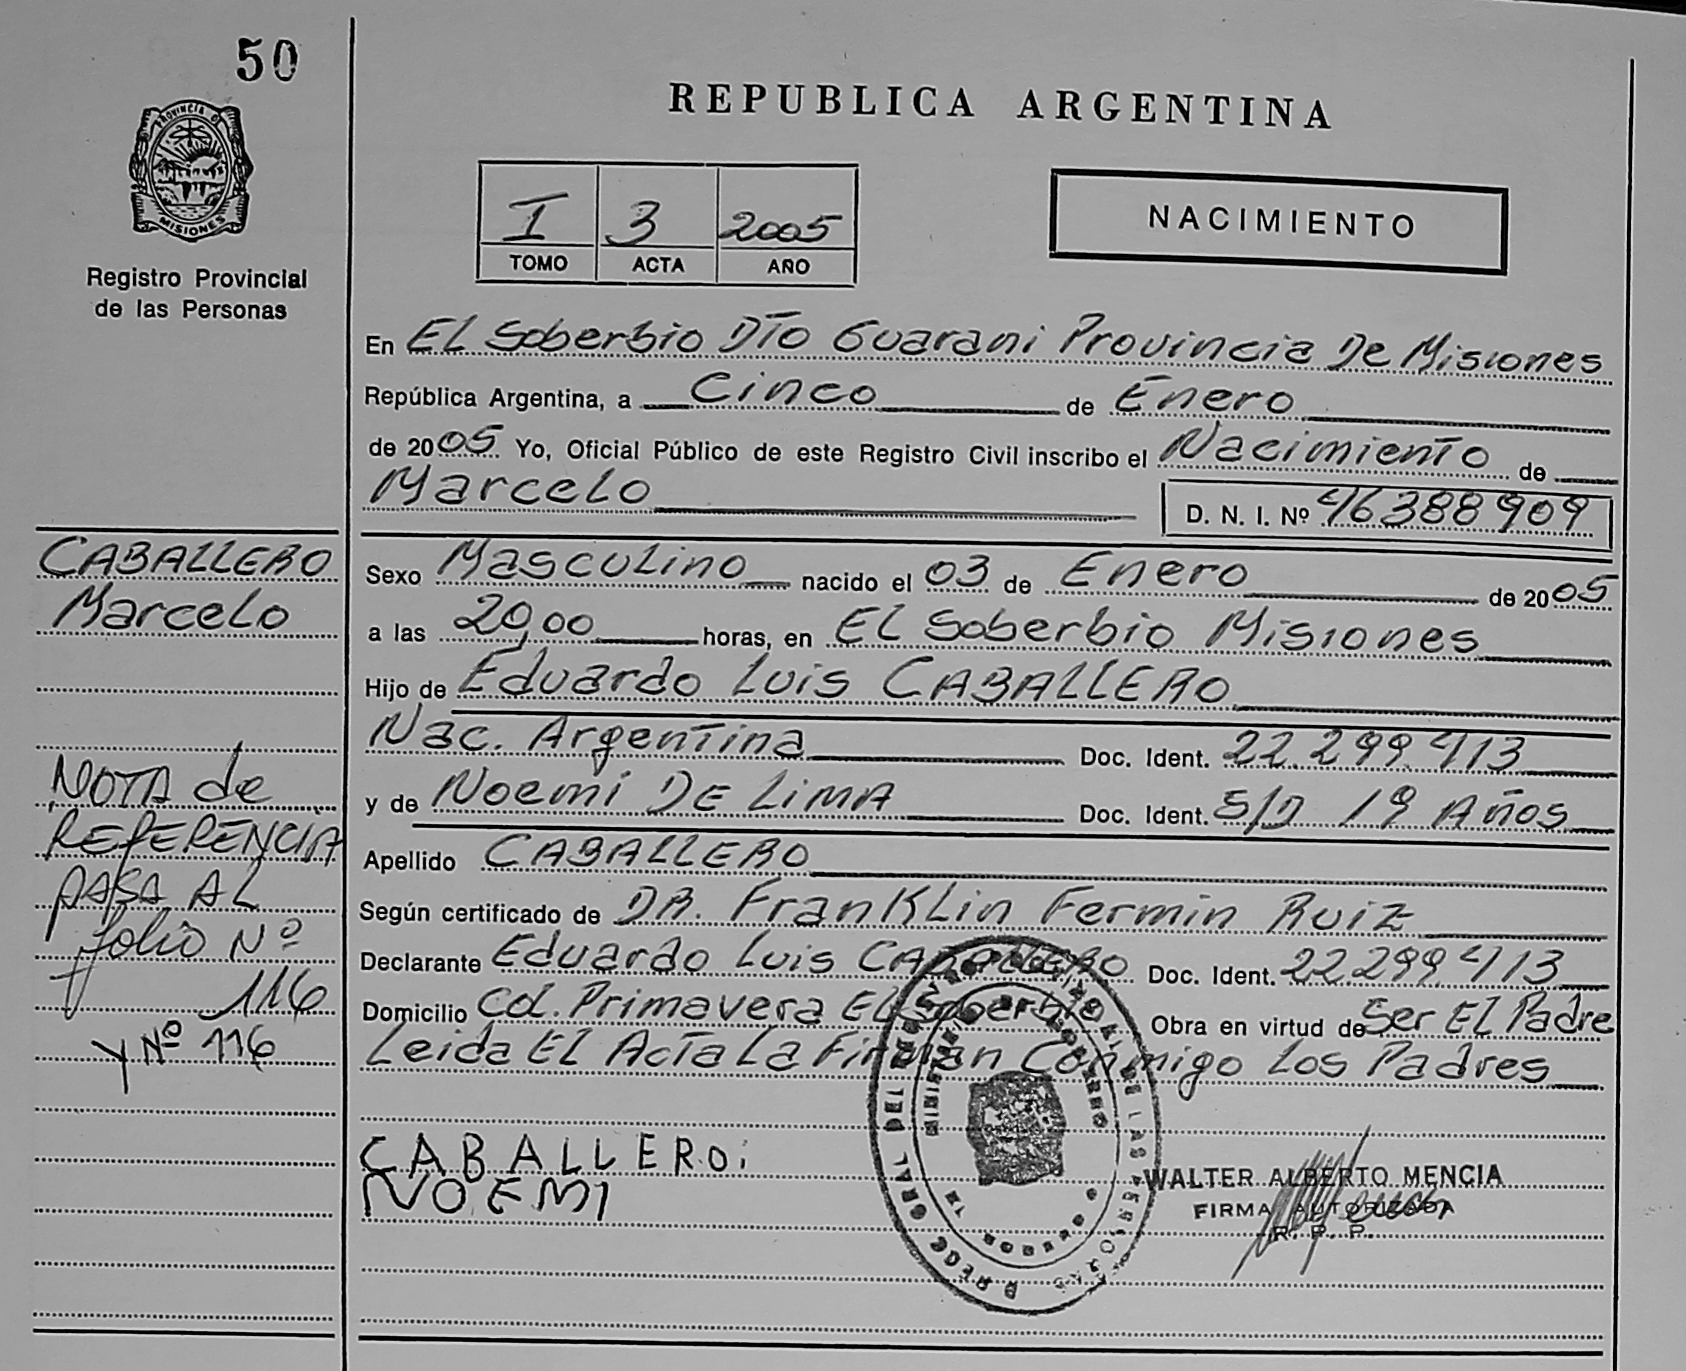 50
REPUBLICA ARGENTINA
PROVINCIA DE MISIONES
Registro Provincial
de las Personas
I 3 2005
TOMO ACTA AÑO
NACIMIENTO
En EL Soberbio DTO Guarani Provincia De Misiones
República Argentina, a Cinco de Enero
de 2005 Yo, Oficial Público de este Registro Civil inscribo el Nacimiento de
Marcelo D. N. I. Nº 46388909
Sexo Masculino nacido el 03 de Enero de 2005
a las 20,00 horas, en EL Soberbio Misiones
Hijo de Eduardo Luis CABALLERO
Nac. Argentina Doc. Ident. 22.299.413
y de Noemi DE LIMA Doc. Ident. S/D 19 Años
Apellido CABALLERO
Según certificado de DR. Franklin Fermin Ruiz
Declarante Eduardo Luis CABALLERO Doc. Ident. 22299413
Domicilio Col. Primavera EL Soberbio Obra en virtud de Ser EL Padre
Leida EL Acta La Firman Conmigo Los Padres
CABALLERO
Marcelo
NOTA de
REFERENCIA
PASA AL
folio Nº
116
y Nº 116
CABALLERO
NOEMI
WALTER ALBERTO MENCIA
FIRMA AUTORIZADA
R. P. P.